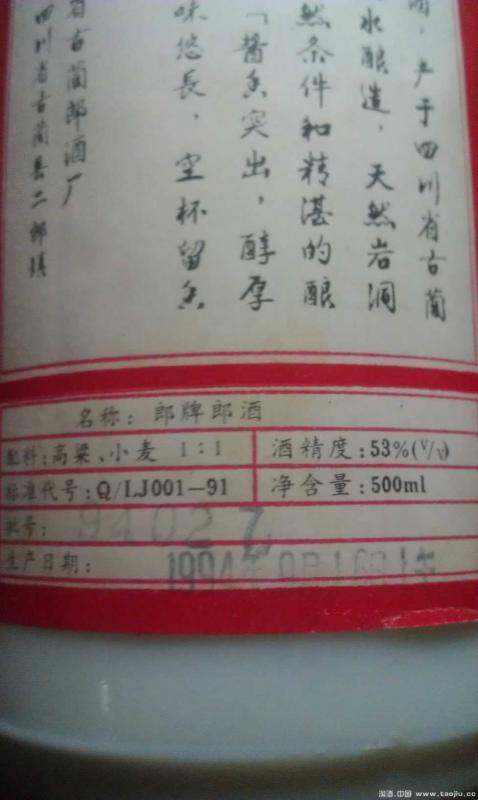 酒，产于四川省古蔺
水酿造，天然岩洞
然条件和精湛的酿
「醬香突出，醇厚
味悠長，空杯留香
省古蔺郎酒厂
四川省古蔺县二郎镇
名称：郎牌郎酒
配料：高粱、小麦 1：1
酒精度：53%(V/V)
标准代号：Q/LJ001—91
净含量：500ml
批号：
9402
生产日期：
1994年
淘酒.中国 www.taojiu.cc